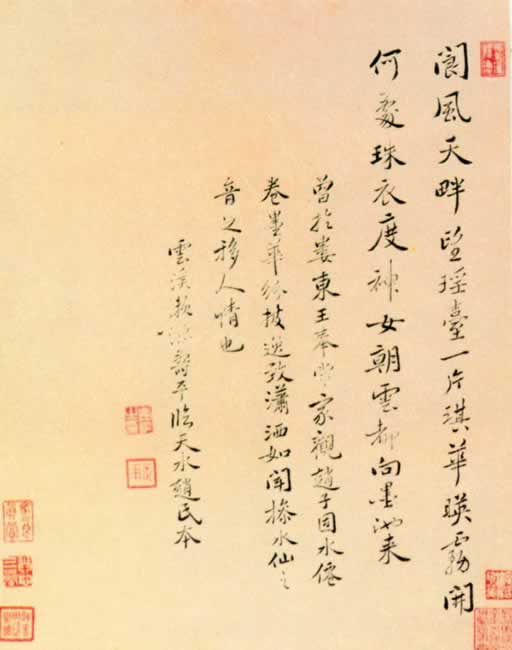 閬風天畔望瑤臺一片琪華暎霧開
何處珠衣度神女朝雲都向墨池来
曾於婁東王奉常家觀趙子固水僊
卷墨華紛披逸致瀟洒如聞操水仙之
音之移人情也
雲溪壽平臨天水趙氏本